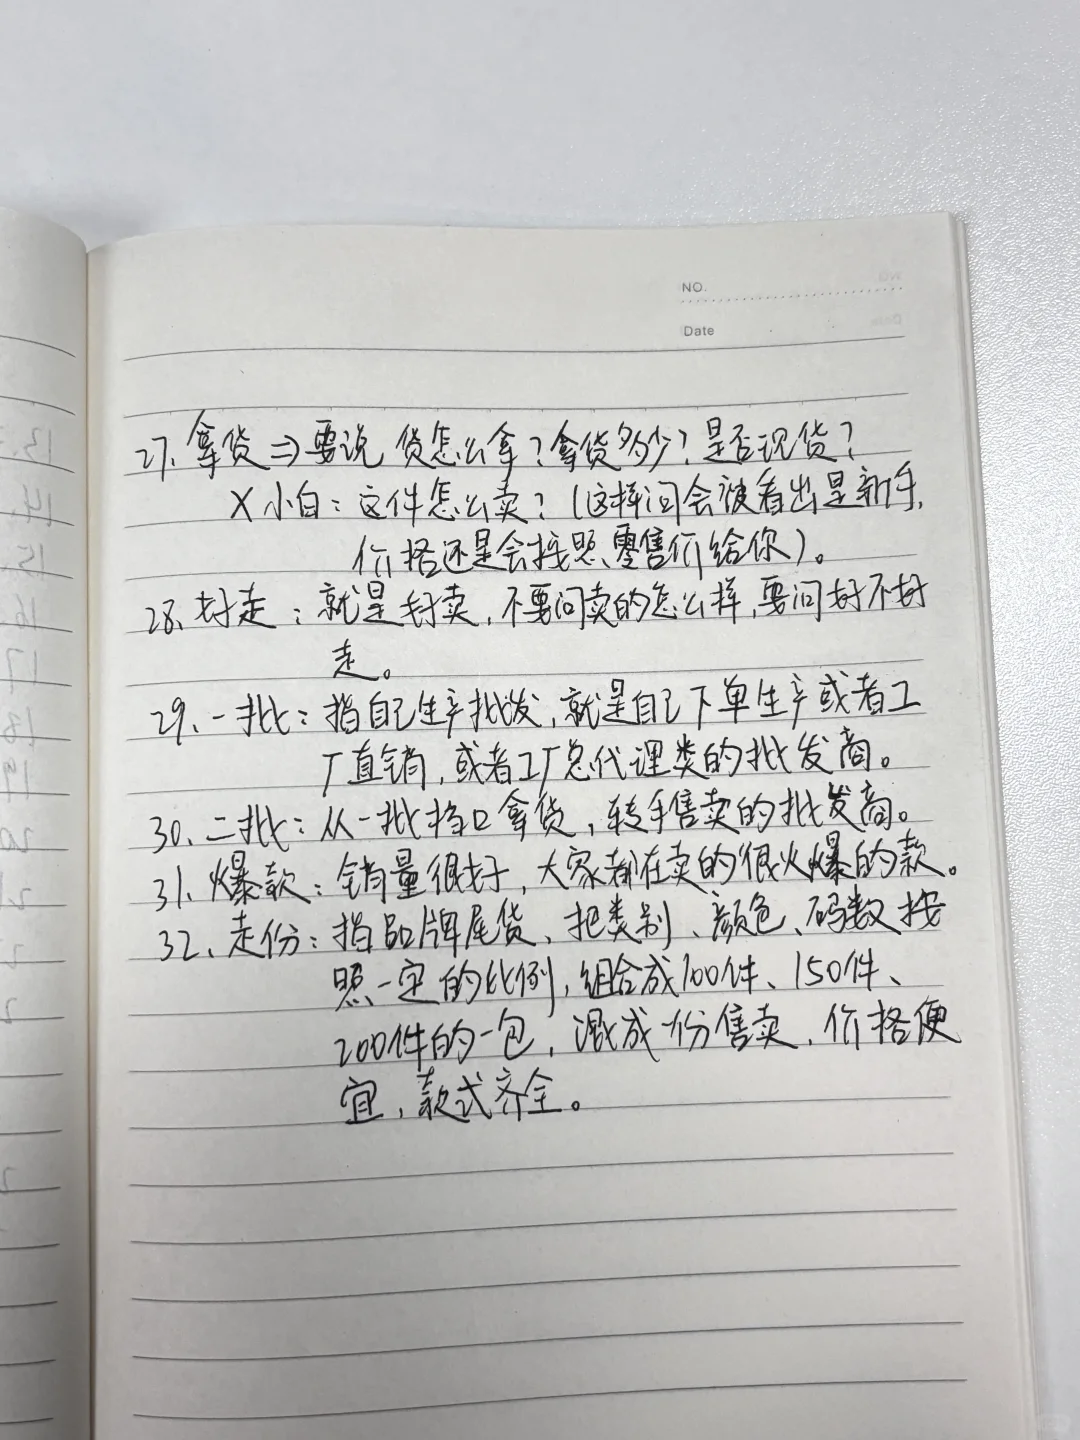 NO.
Date
27、拿货⇒要说 货怎么拿？拿货多少？是否现货？
X 小白：这件怎么卖？（这样问会被看出是新手，
价格还是会按照零售价给你）。
28、好走：就是好卖，不要问卖的怎么样，要问好不好
走。
29、一批：指自己生产批发，就是自己下单生产或者工
厂直销，或者工厂总代理类的批发商。
30、二批：从一批档口拿货，转手售卖的批发商。
31、爆款：销量很好，大家都在卖的很火爆的款。
32、走份：指品牌尾货、把类别、颜色、码数按
照一定的比例，组合成100件、150件、
200件的一包，混成一份售卖，价格便
宜，款式齐全。